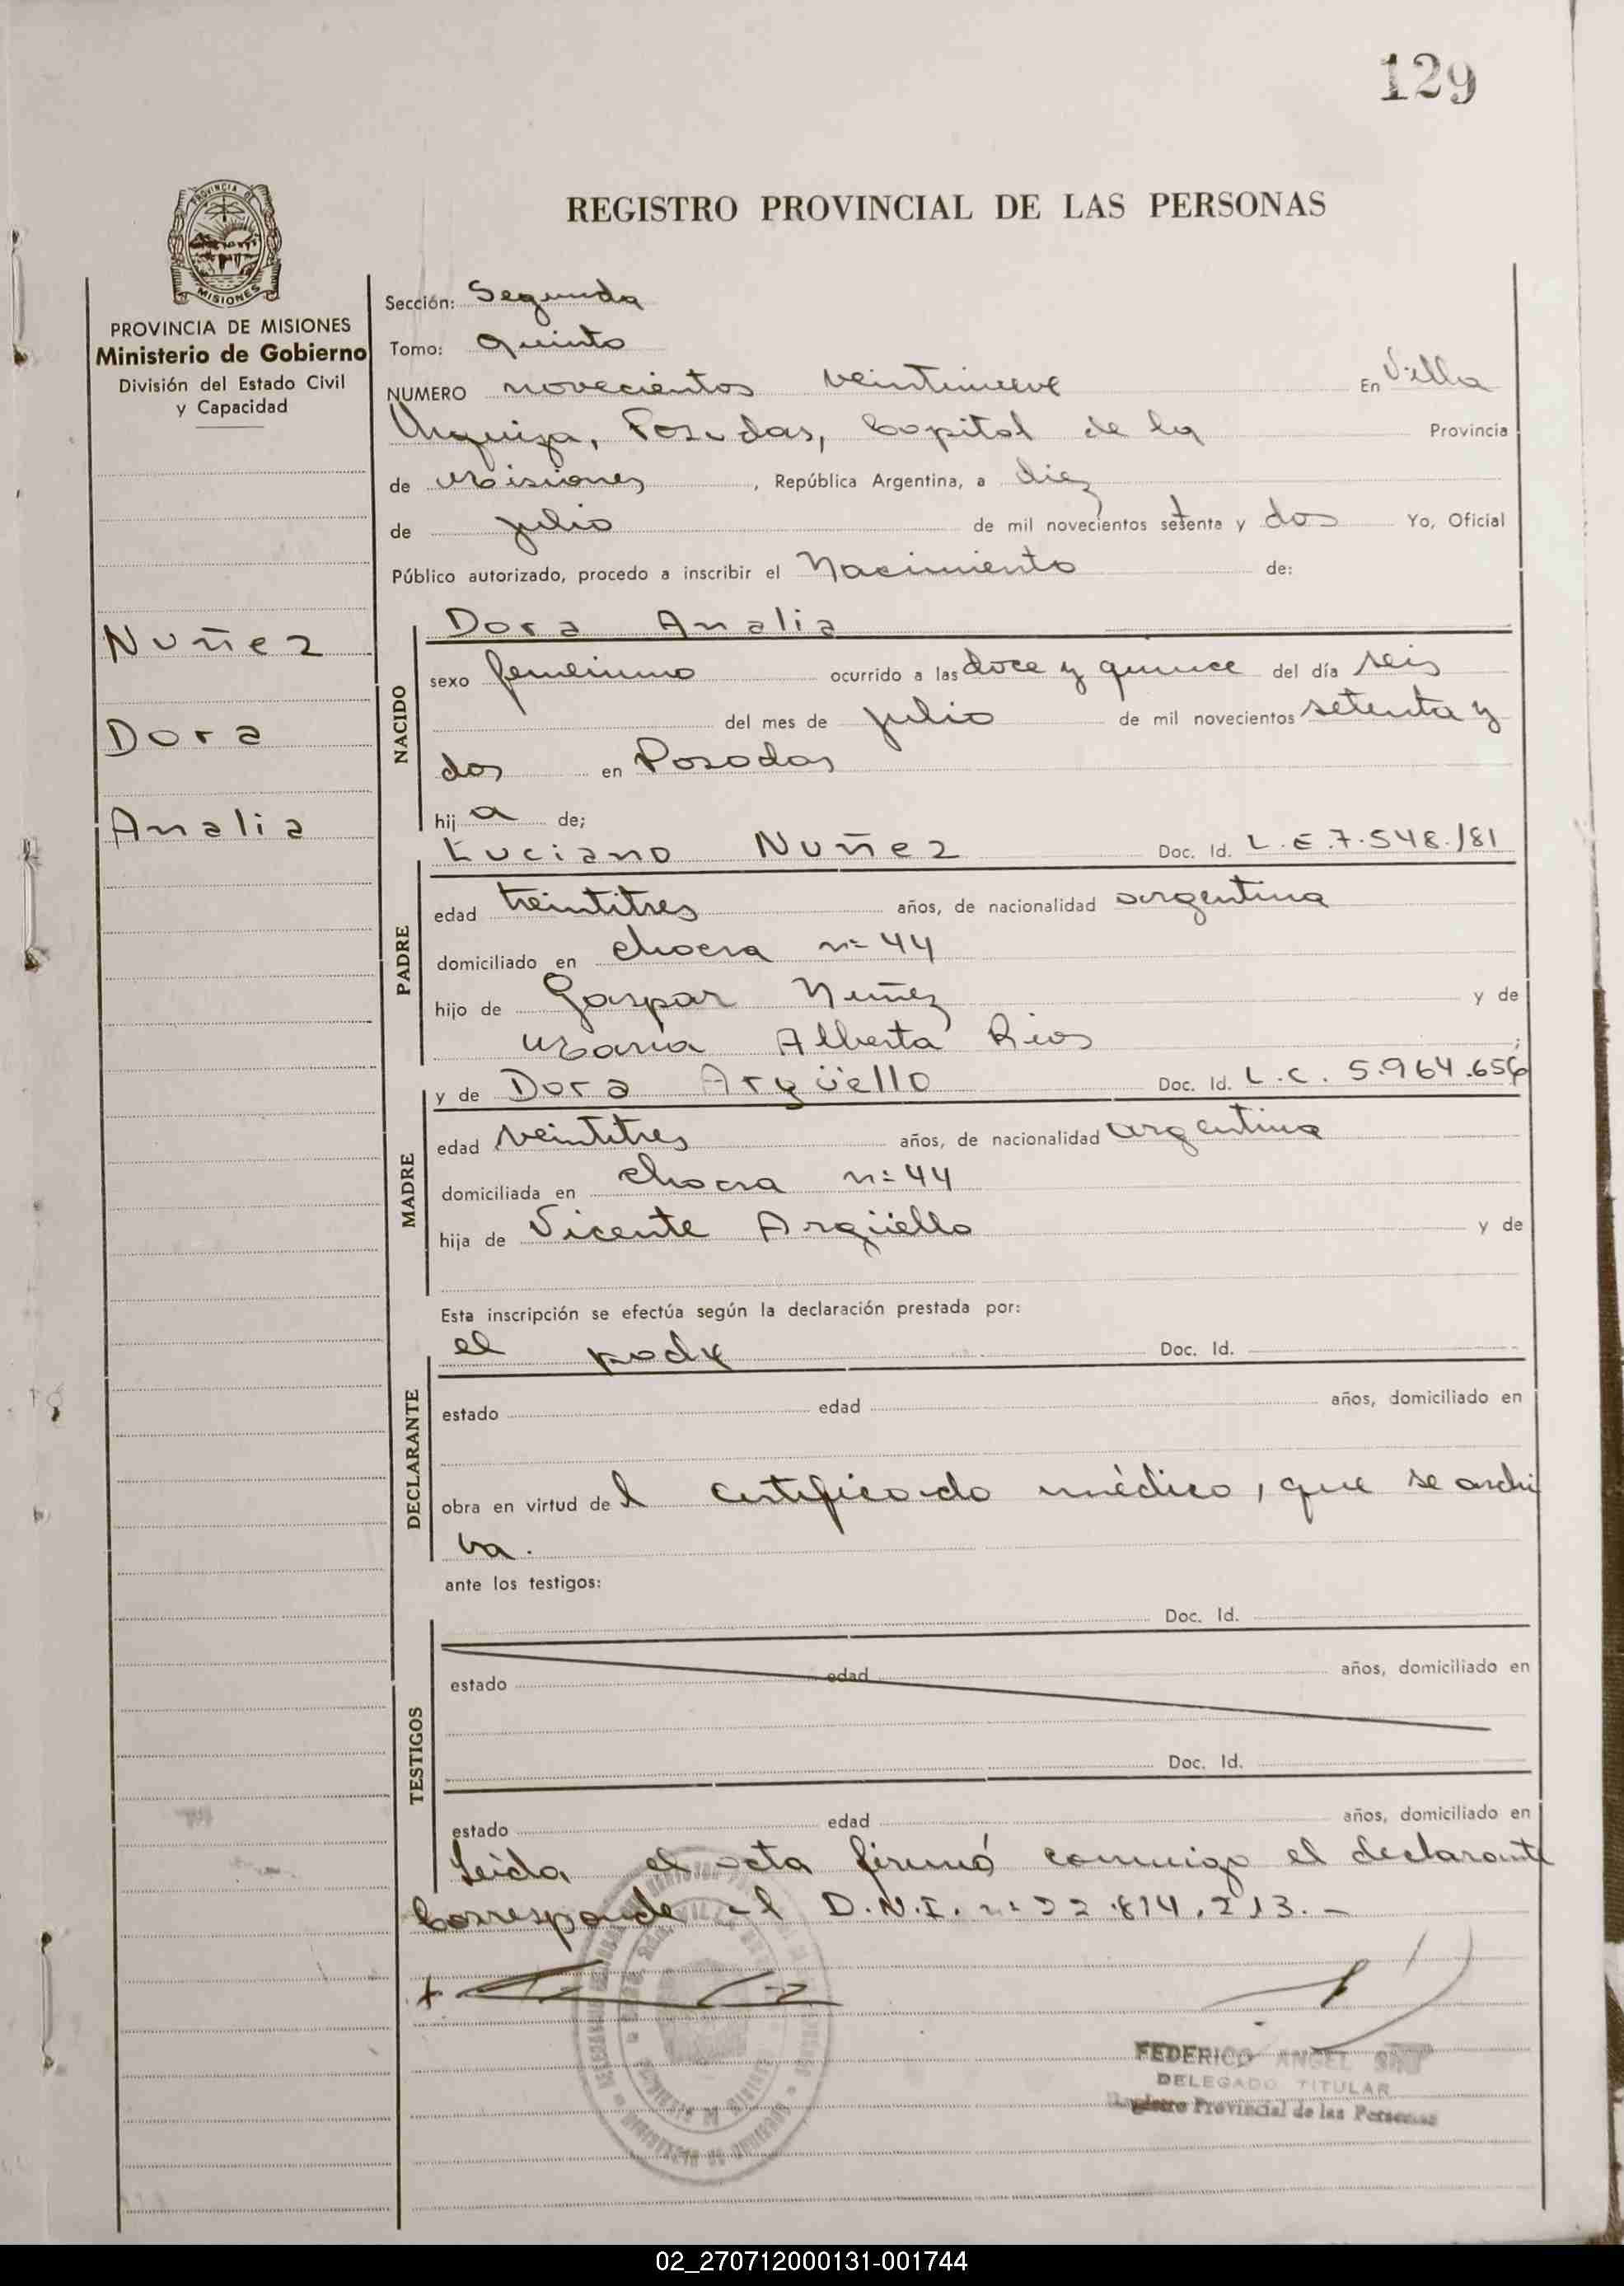 129
PROVINCIA DE
MISIONES
REGISTRO PROVINCIAL DE LAS PERSONAS
PROVINCIA DE MISIONES
Ministerio de Gobierno
División del Estado Civil
y Capacidad
Nuñez
Dora
Analia
Sección: Segunda
Tomo: Quinto
NUMERO novecientos veintinueve En Villa
Urquiza, Posadas, Capital de la Provincia
de Misiones, República Argentina, a diez
de julio de mil novecientos setenta y dos Yo, Oficial
Público autorizado, procedo a inscribir el Nacimiento de:
NACIDO
Dora Analia
sexo femenino ocurrido a las doce y quince del día seis
del mes de julio de mil novecientos setenta y
dos en Posadas
hija de;
PADRE
Luciano Nuñez Doc. Id. L.E.7.548.181
edad treintitres años, de nacionalidad argentina
domiciliado en chacra nº 44
hijo de Gaspar Nuñez y de
María Alberta Rios ;
MADRE
y de Dora Argüello Doc. Id. L.C. 5.964.656
edad veintitres años, de nacionalidad argentina
domiciliada en chacra nº 44
hija de Vicente Argüello y de
Esta inscripción se efectúa según la declaración prestada por:
DECLARANTE
el padre Doc. Id.
estado edad años, domiciliado en
obra en virtud del certificado médico, que se archi
va.
ante los testigos:
TESTIGOS
Doc. Id.
estado edad años, domiciliado en
Doc. Id.
estado edad años, domiciliado en
Leída el acta firmó conmigo el declarante
Corresponde el D.N.I. nº 22.814.213.-
FEDERICO ANGEL
DELEGADO TITULAR
Registro Provincial de las Personas
02_270712000131-001744